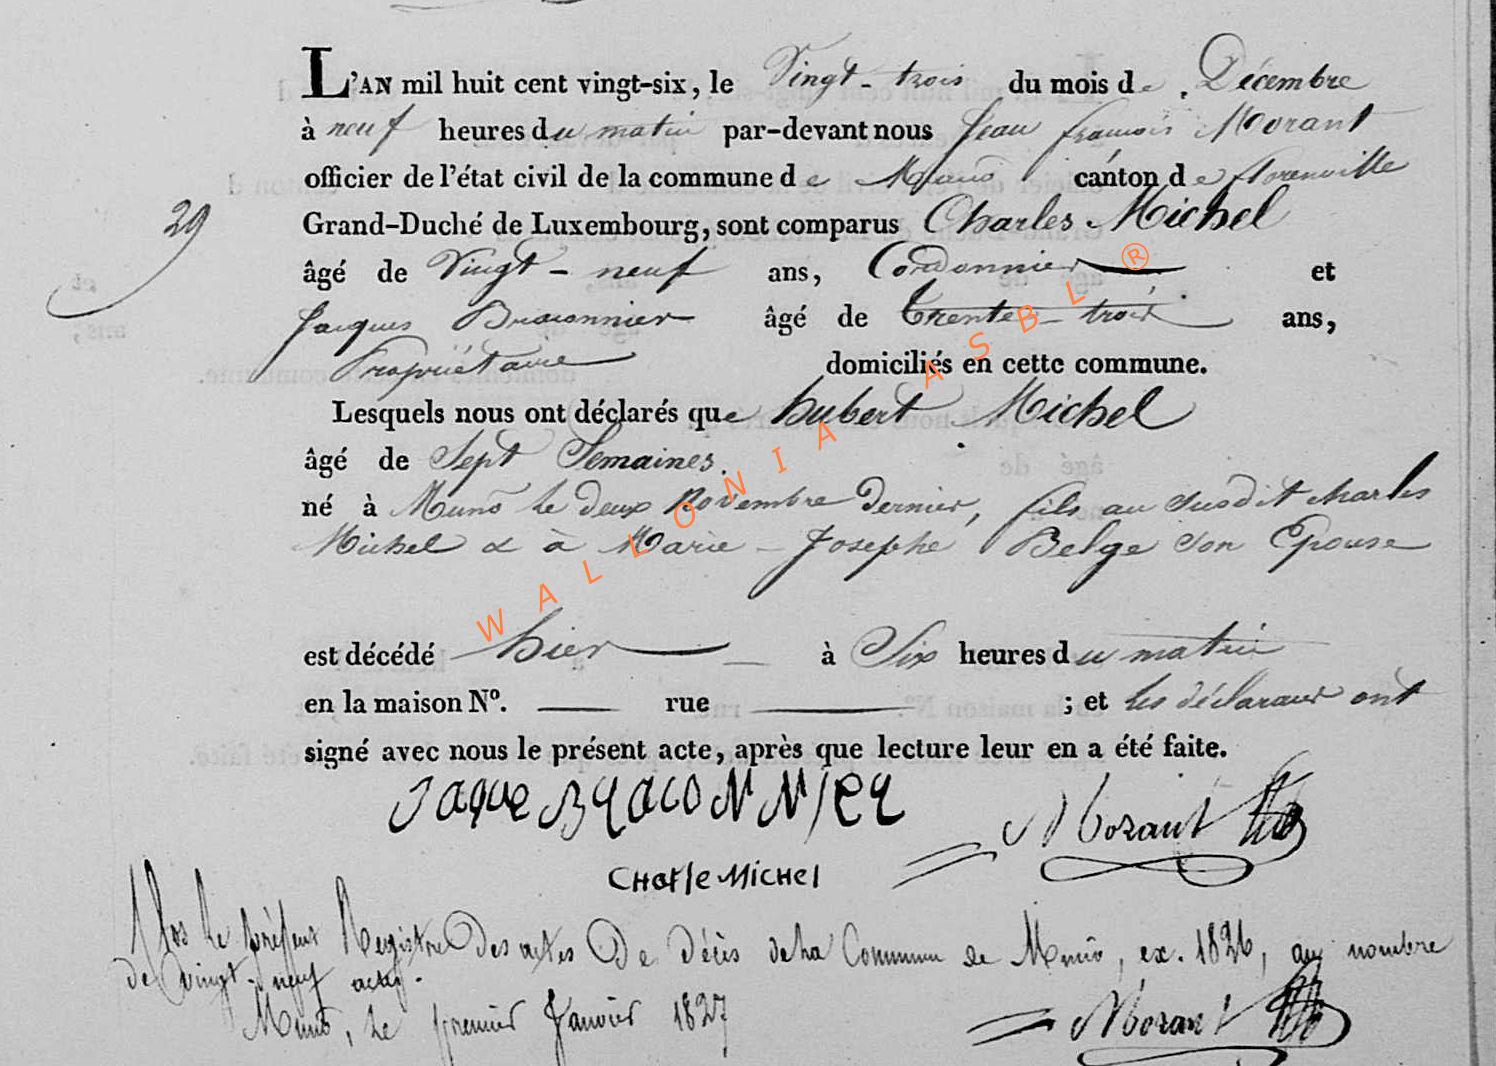 L'AN mil huit cent vingt-six, le Vingt-trois du mois de Décembre
à neuf heures du matin par-devant nous Jean françois Morant
officier de l'état civil de la commune de Muno canton de florenville
29
Grand-Duché de Luxembourg, sont comparus Charles Michel
âgé de Vingt-neuf ans, Cordonnier et
Jacques Braconnier âgé de trente-trois ans,
Propriétaire domiciliés en cette commune.
Lesquels nous ont déclarés que hubert Michel
âgé de Sept Semaines.
né à Muno le deux Novembre dernier, fils au susdit charles
Michel & à Marie-Josephe Belge son Epouse
est décédé hier à Six heures du matin
en la maison N°. rue ; et les déclarans ont
signé avec nous le présent acte, après que lecture leur en a été faite.
Jaque BraconNier
Morant
CHarle MicHel
Clos le présent Registre des actes De décès de la Commune de Muno, ex. 1826, au nombre
de vingt-neuf actes.
Muno, le premier Janvier 1827
Morant
WALLONIA ASBL ®